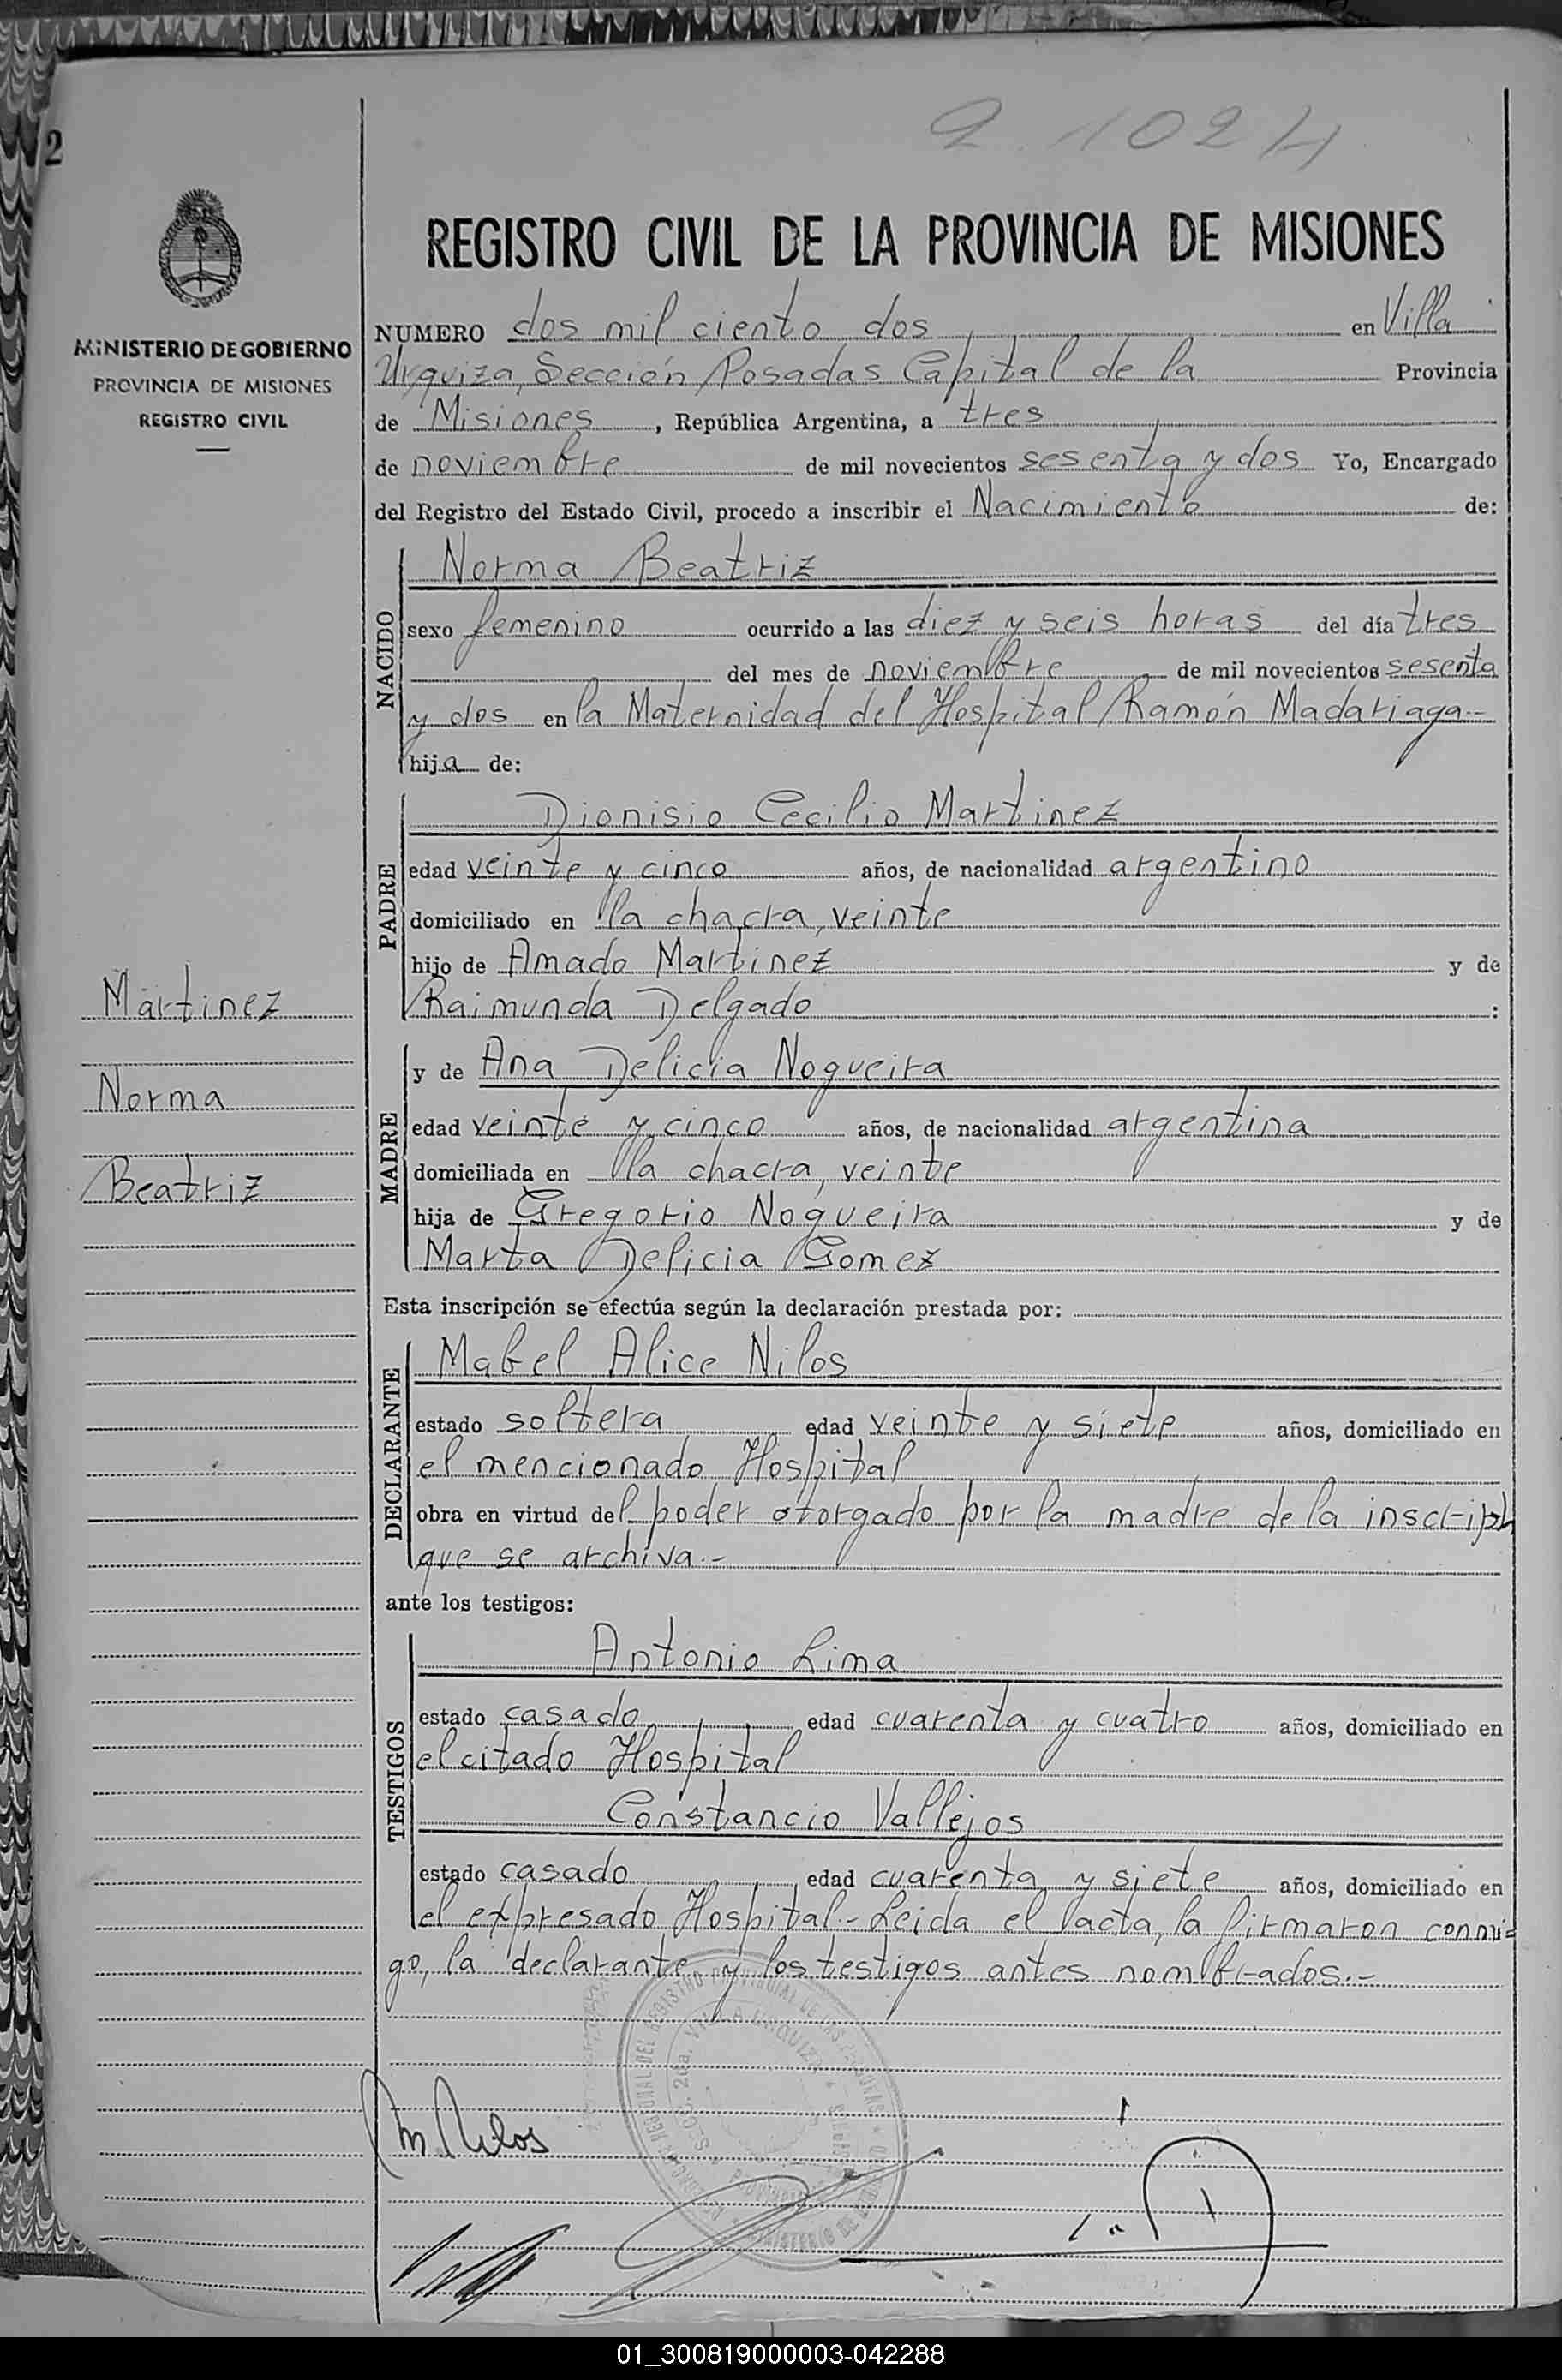 2
2.1024
MINISTERIO DE GOBIERNO
PROVINCIA DE MISIONES
REGISTRO CIVIL
Martinez
Norma
Beatriz
REGISTRO CIVIL DE LA PROVINCIA DE MISIONES
NUMERO dos mil ciento dos en Villa
Urquiza, Sección Posadas Capital de la Provincia
de Misiones, República Argentina, a tres
de noviembre de mil novecientos sesenta y dos Yo, Encargado
del Registro del Estado Civil, procedo a inscribir el Nacimiento de:
NACIDO
Norma Beatriz
sexo femenino ocurrido a las diez y seis horas del día tres
del mes de noviembre de mil novecientos sesenta
y dos en la Maternidad del Hospital Ramón Madariaga.-
hija de:
PADRE
Dionisio Cecilio Martinez
edad veinte y cinco años, de nacionalidad argentino
domiciliado en la chacra, veinte
hijo de Amado Martinez y de
Raimunda Delgado :
MADRE
y de Ana Delicia Nogueira
edad veinte y cinco años, de nacionalidad argentina
domiciliada en la chacra, veinte
hija de Gregorio Nogueira y de
Marta Delicia Gomez
Esta inscripción se efectúa según la declaración prestada por:
DECLARANTE
Mabel Alice Nilos
estado soltera edad veinte y siete años, domiciliado en
el mencionado Hospital
obra en virtud del poder otorgado por la madre de la
que se archiva.-
ante los testigos:
TESTIGOS
Antonio Lima
estado casado edad cuarenta y cuatro años, domiciliado en
el citado Hospital
Constancio Vallejos
estado casado edad cuarenta y siete años, domiciliado en
el expresado Hospital.- Leida el lacta, la firmaron conmi=
go, la declarante y los testigos antes nombrados.-
SECC. 2da. VILLA URQUIZA
M. Nilos
01_300819000003-042288